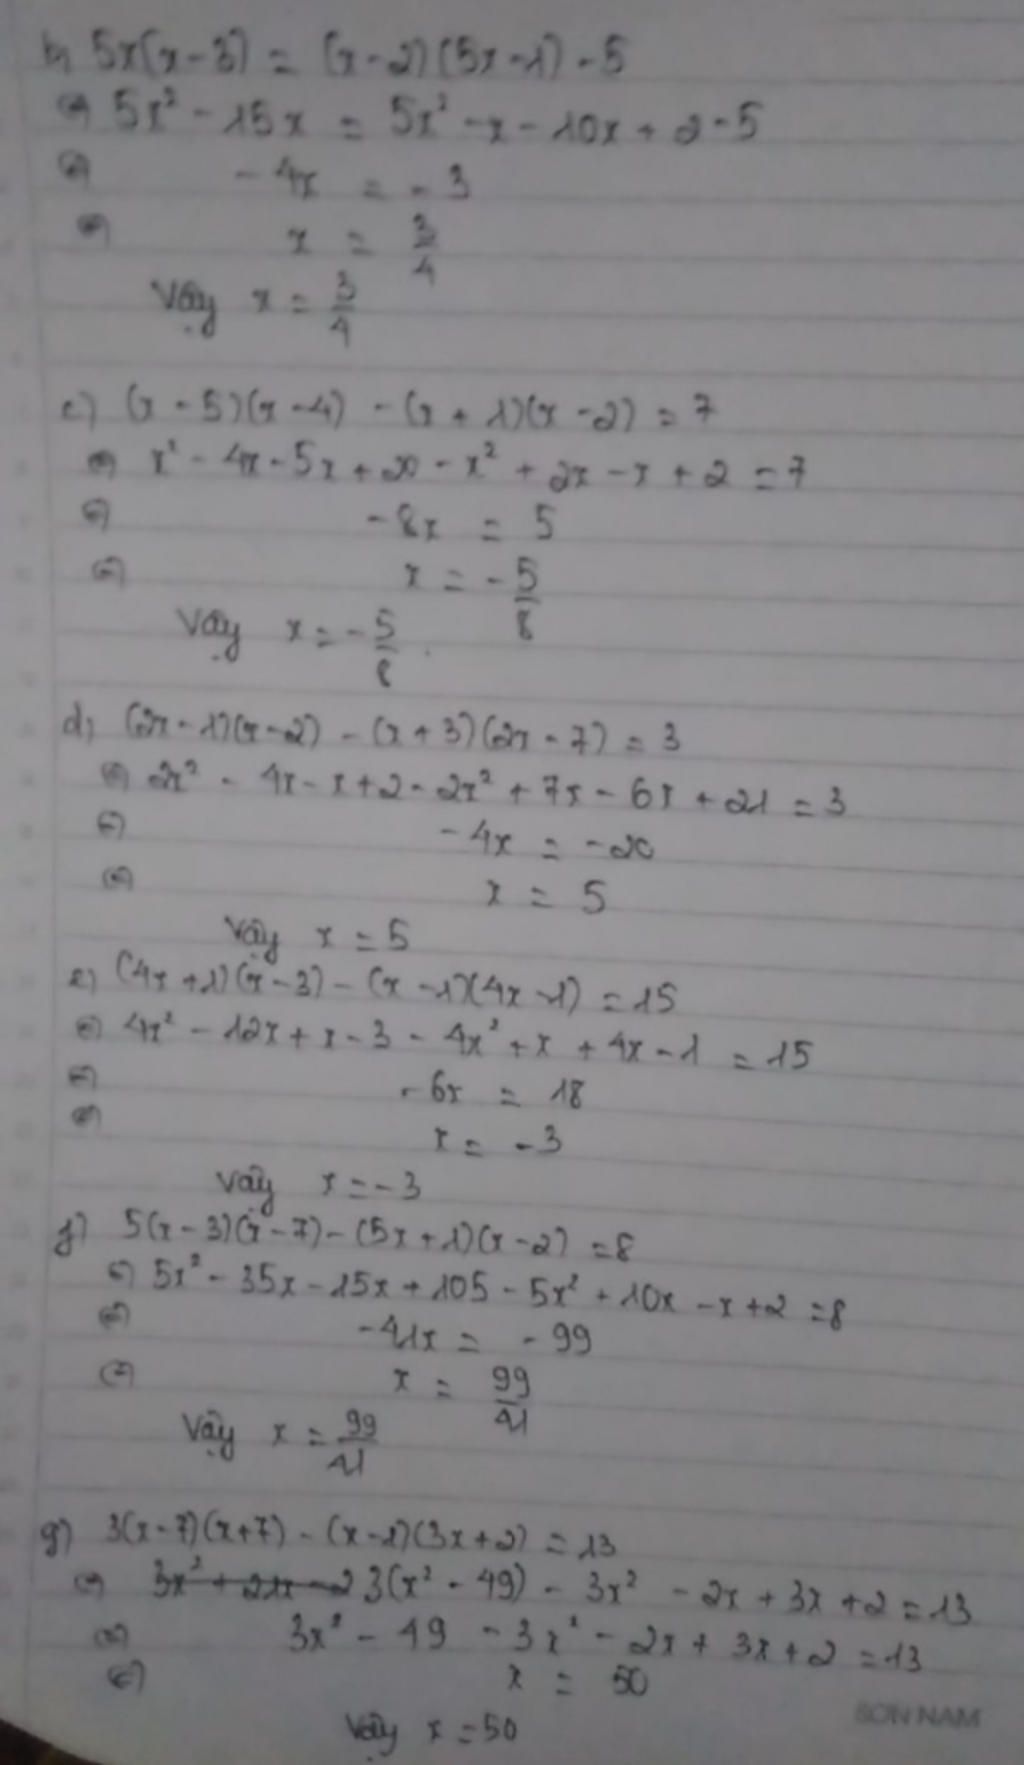 b, 5x(x-3) = (x-2)(5x-1)-5
⇔ 5x² - 15x = 5x² - x - 10x + 2 - 5
⇔ -4x = -3
⇔ x = 3/4
Vậy x = 3/4
c) (x-5)(x-4) - (x+1)(x-2) = 7
⇔ x² - 4x - 5x + 20 - x² + 2x - x + 2 = 7
⇔ -8x = 5
⇔ x = -5/8
Vậy x = -5/8.
d, (2x-1)(x-2) - (x+3)(2x-7) = 3
⇔ 2x² - 4x - x + 2 - 2x² + 7x - 6x + 21 = 3
⇔ -4x = -20
⇔ x = 5
Vậy x = 5
e) (4x+1)(x-3) - (x-1)(4x-1) = 15
⇔ 4x² - 12x + x - 3 - 4x² + x + 4x - 1 = 15
⇔ -6x = 18
⇔ x = -3
Vậy x = -3
f) 5(x-3)(x-7) - (5x+1)(x-2) = 8
⇔ 5x² - 35x - 15x + 105 - 5x² + 10x - x + 2 = 8
⇔ -41x = -99
⇔ x = 99/41
Vậy x = 99/41
g) 3(x-7)(x+7) - (x-1)(3x+2) = 13
⇔ 3(x² - 49) - 3x² - 2x + 3x + 2 = 13
⇔ 3x² - 49 - 3x² - 2x + 3x + 2 = 13
⇔ x = 50
Vậy x = 50
SON NAM